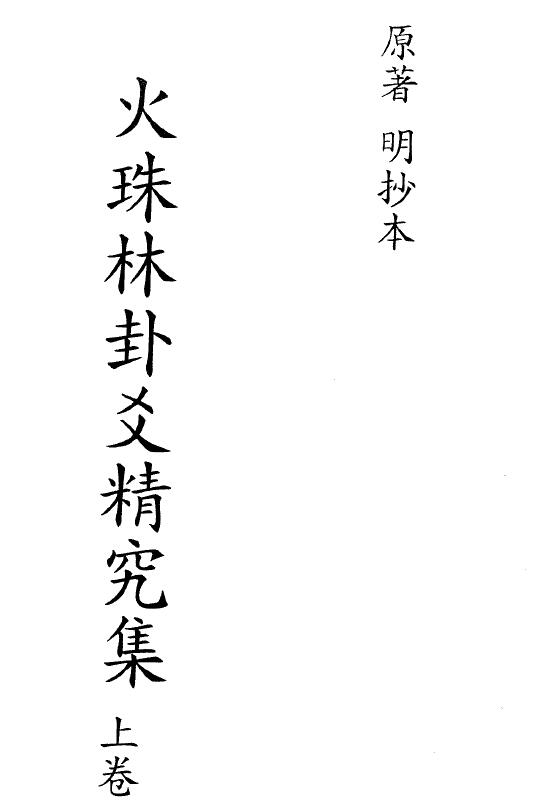 原著 明抄本
火珠林卦爻精究集 上卷